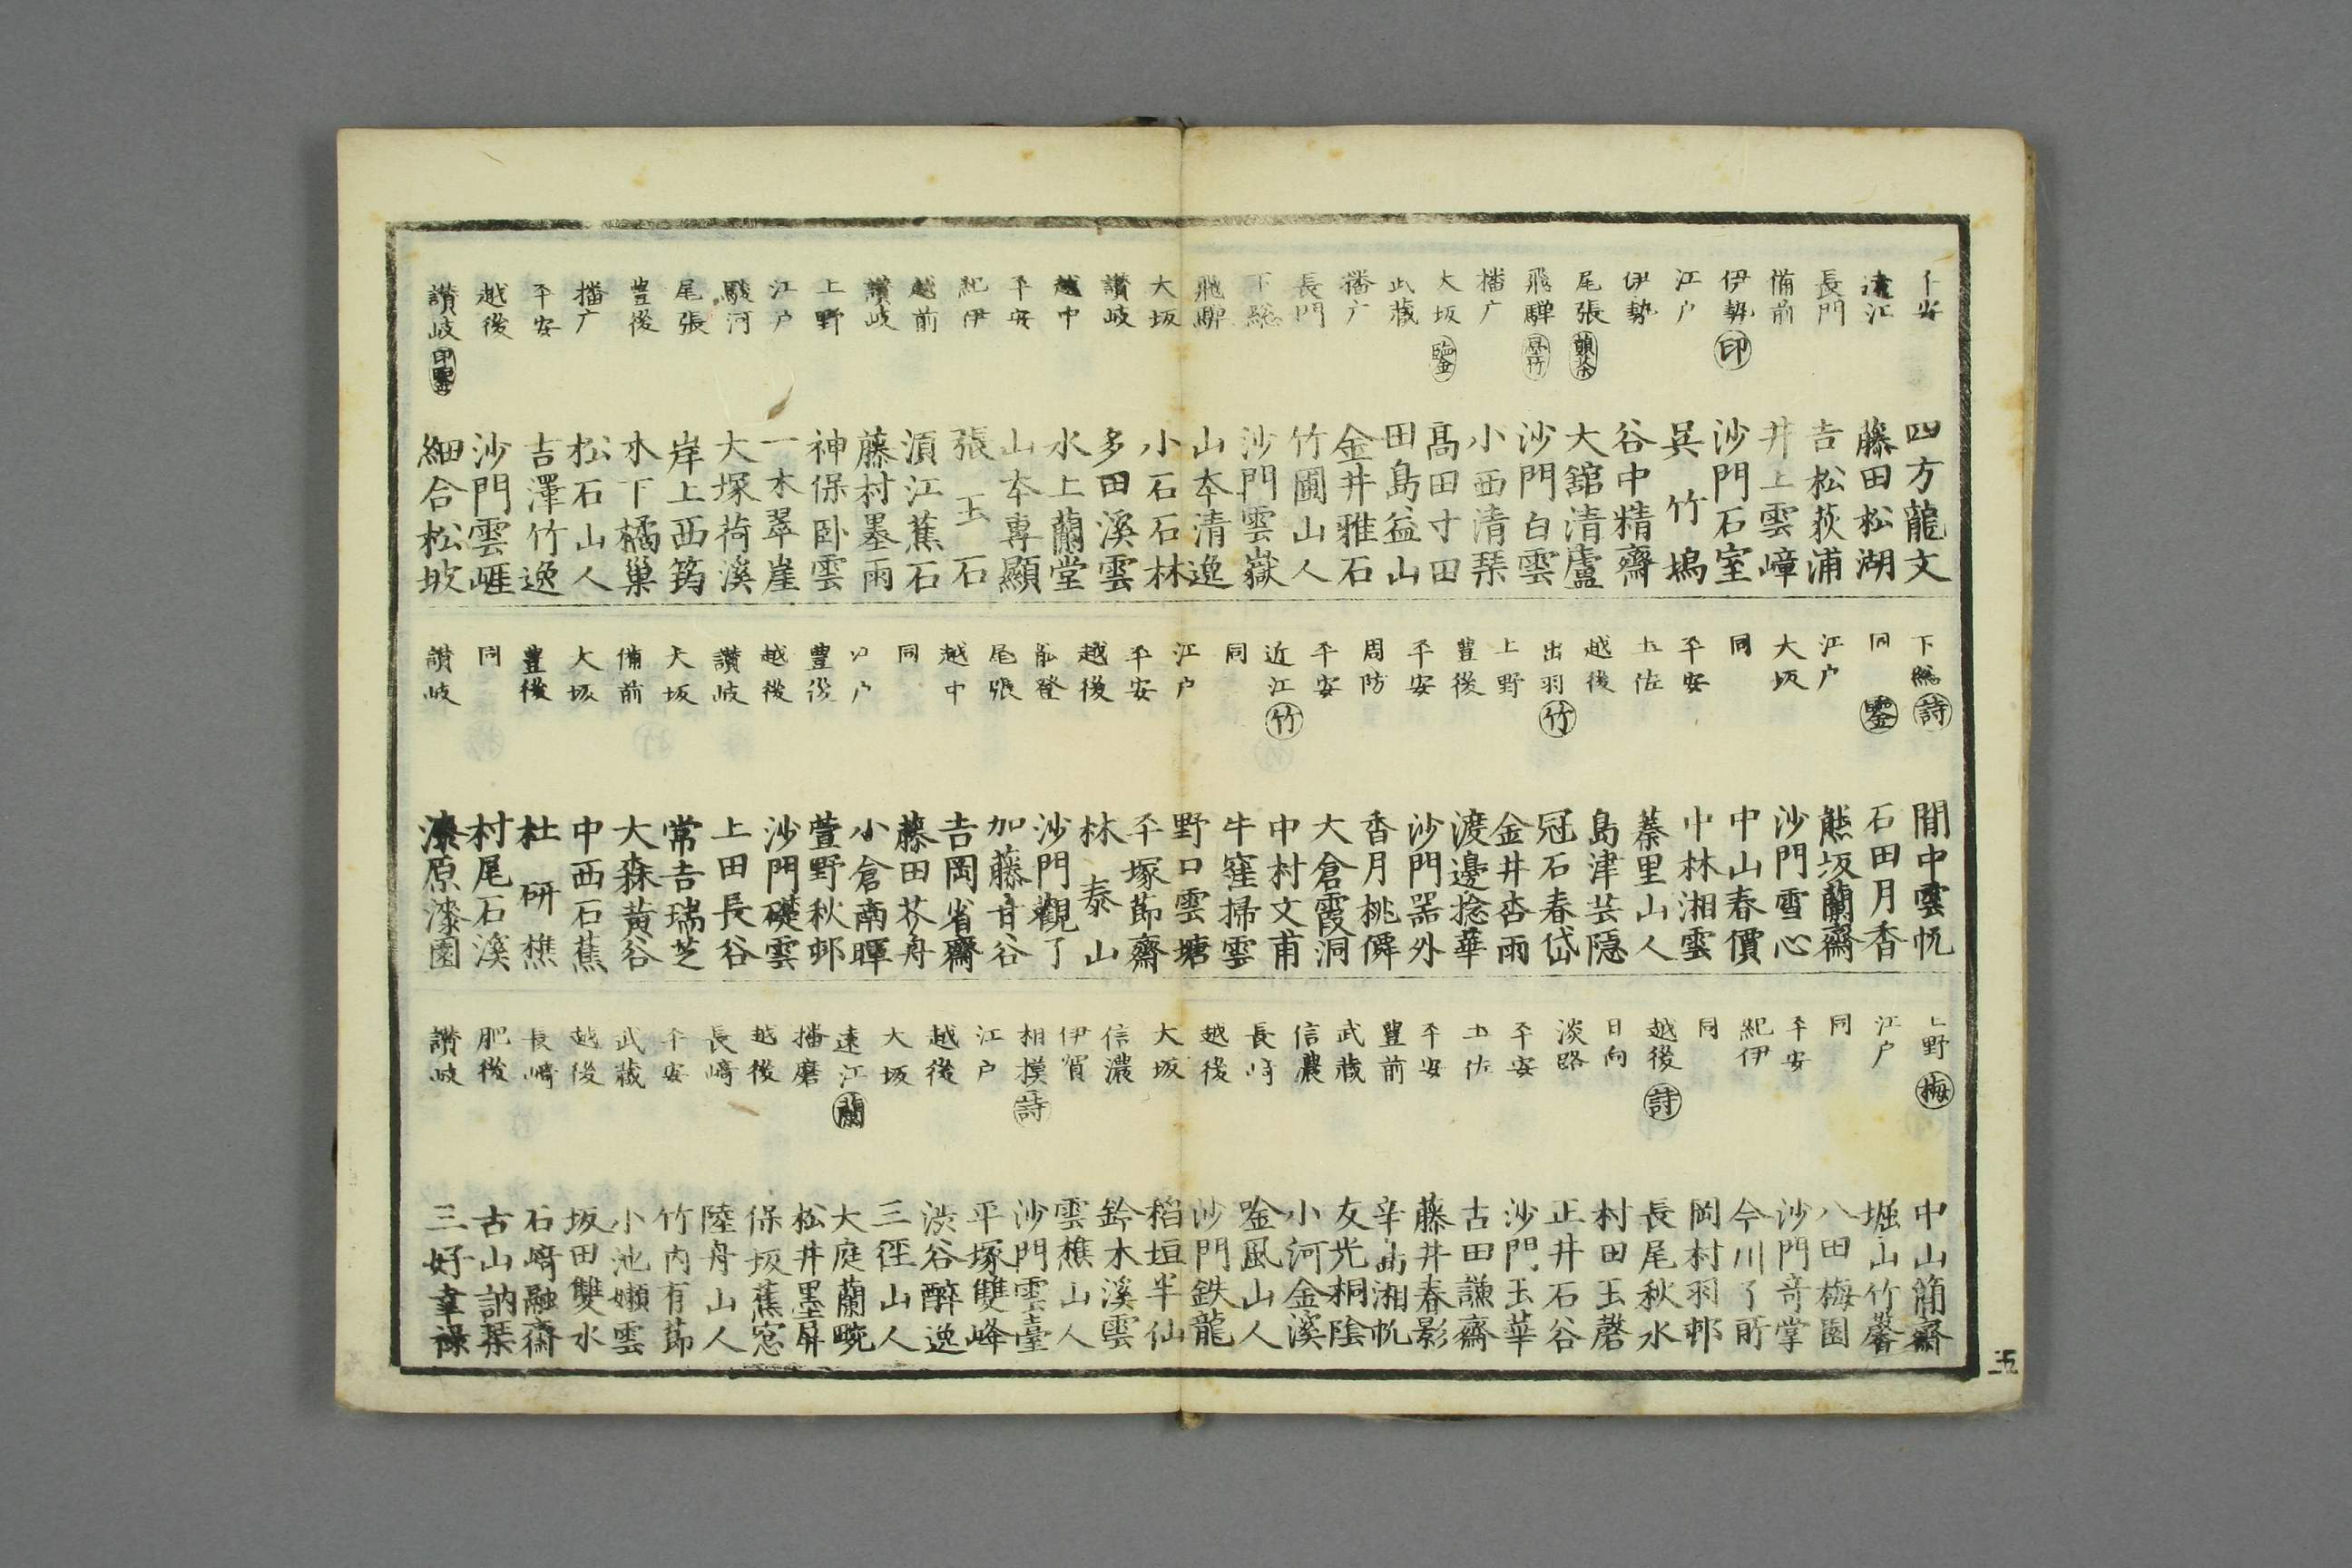 平安 四方龍文
遠江 藤田松湖
長門 吉松荻浦
備前 井上雲嶂
伊勢 印 沙門石室
江戸 呉竹塢
伊勢 谷中精齋
尾張 韻茶 大舘清盧
飛騨 沙門白雲
播广 小西清琹
大坂 鑒 髙田寸田
武蔵 田島益山
播广 金井雅石
長門 竹圃山人
下総 沙門雲嶽
飛騨 山本清逸
大坂 小石石林
讃岐 多田溪雲
越中 水上蘭堂
平安 山本專顯
紀伊 張玉石
越前 濵江蕉石
讃岐 藤村墨雨
上野 神保卧雲
江戸 一木翠崖
駿河 大塚荷溪
尾張 岸上西筠
豊後 木下橘巢
播广 松石山人
平安 吉澤竹逸
越後 沙門雲崕
讃岐 印鑒 細合松坡
下総 詩 間中雲帆
同 鑒 石田月香
江戸 熊坂蘭齋
大坂 沙門雪心
同 中山春價
平安 中林湘雲
土佐 蓁里山人
越後 島津芸隠
出羽 竹 冠石春岱
上野 金井杏雨
豊後 渡邊捴華
平安 沙門器外
周防 香月桃僲
平安 大倉霞洞
近江 竹 中村文甫
同 牛窪掃雲
江戸 野口雲塘
平安 平塚節齋
越後 林泰山
能登 沙門觀了
尾張 加藤甘谷
越中 吉岡省齋
同 藤田芥舟
江戸 小倉南暉
豊後 萱野秋邨
越後 沙門礎雲
讃岐 上田長谷
大坂 常吉瑞芝
備前 大森黄谷
大坂 中西石蕉
豊後 杜研樵
同 村尾石溪
讃岐 漆原漆園
上野 梅 中山簡齋
江戸 堀山竹馨
同 八田梅園
平安 沙門竒掌
紀伊 今川了所
同 岡村羽邨
越後 詩 長尾秋水
日向 村田玉磬
淡路 正井石谷
平安 沙門玉華
土佐 古田謙齋
平安 藤井春影
豊前 辛島湘帆
武蔵 友光桐陰
信濃 小河金溪
長﨑 崟風山人
越後 沙門鉄龍
大坂 稻垣半仙
信濃 鈴木溪雲
伊賀 雲樵山人
相摸 詩 沙門雲臺
江戸 平塚雙峰
越後 渋谷醉逸
大坂 三徑山人
遠江 蘭 大庭蘭畹
播磨 松井墨屏
越後 保坂蕉窓
長﨑 陸舟山人
平安 竹内有節
武蔵 小池嬾雲
越後 坂田雙水
長﨑 石﨑融齋
肥後 古山訥琹
讃岐 三好韋禄
五